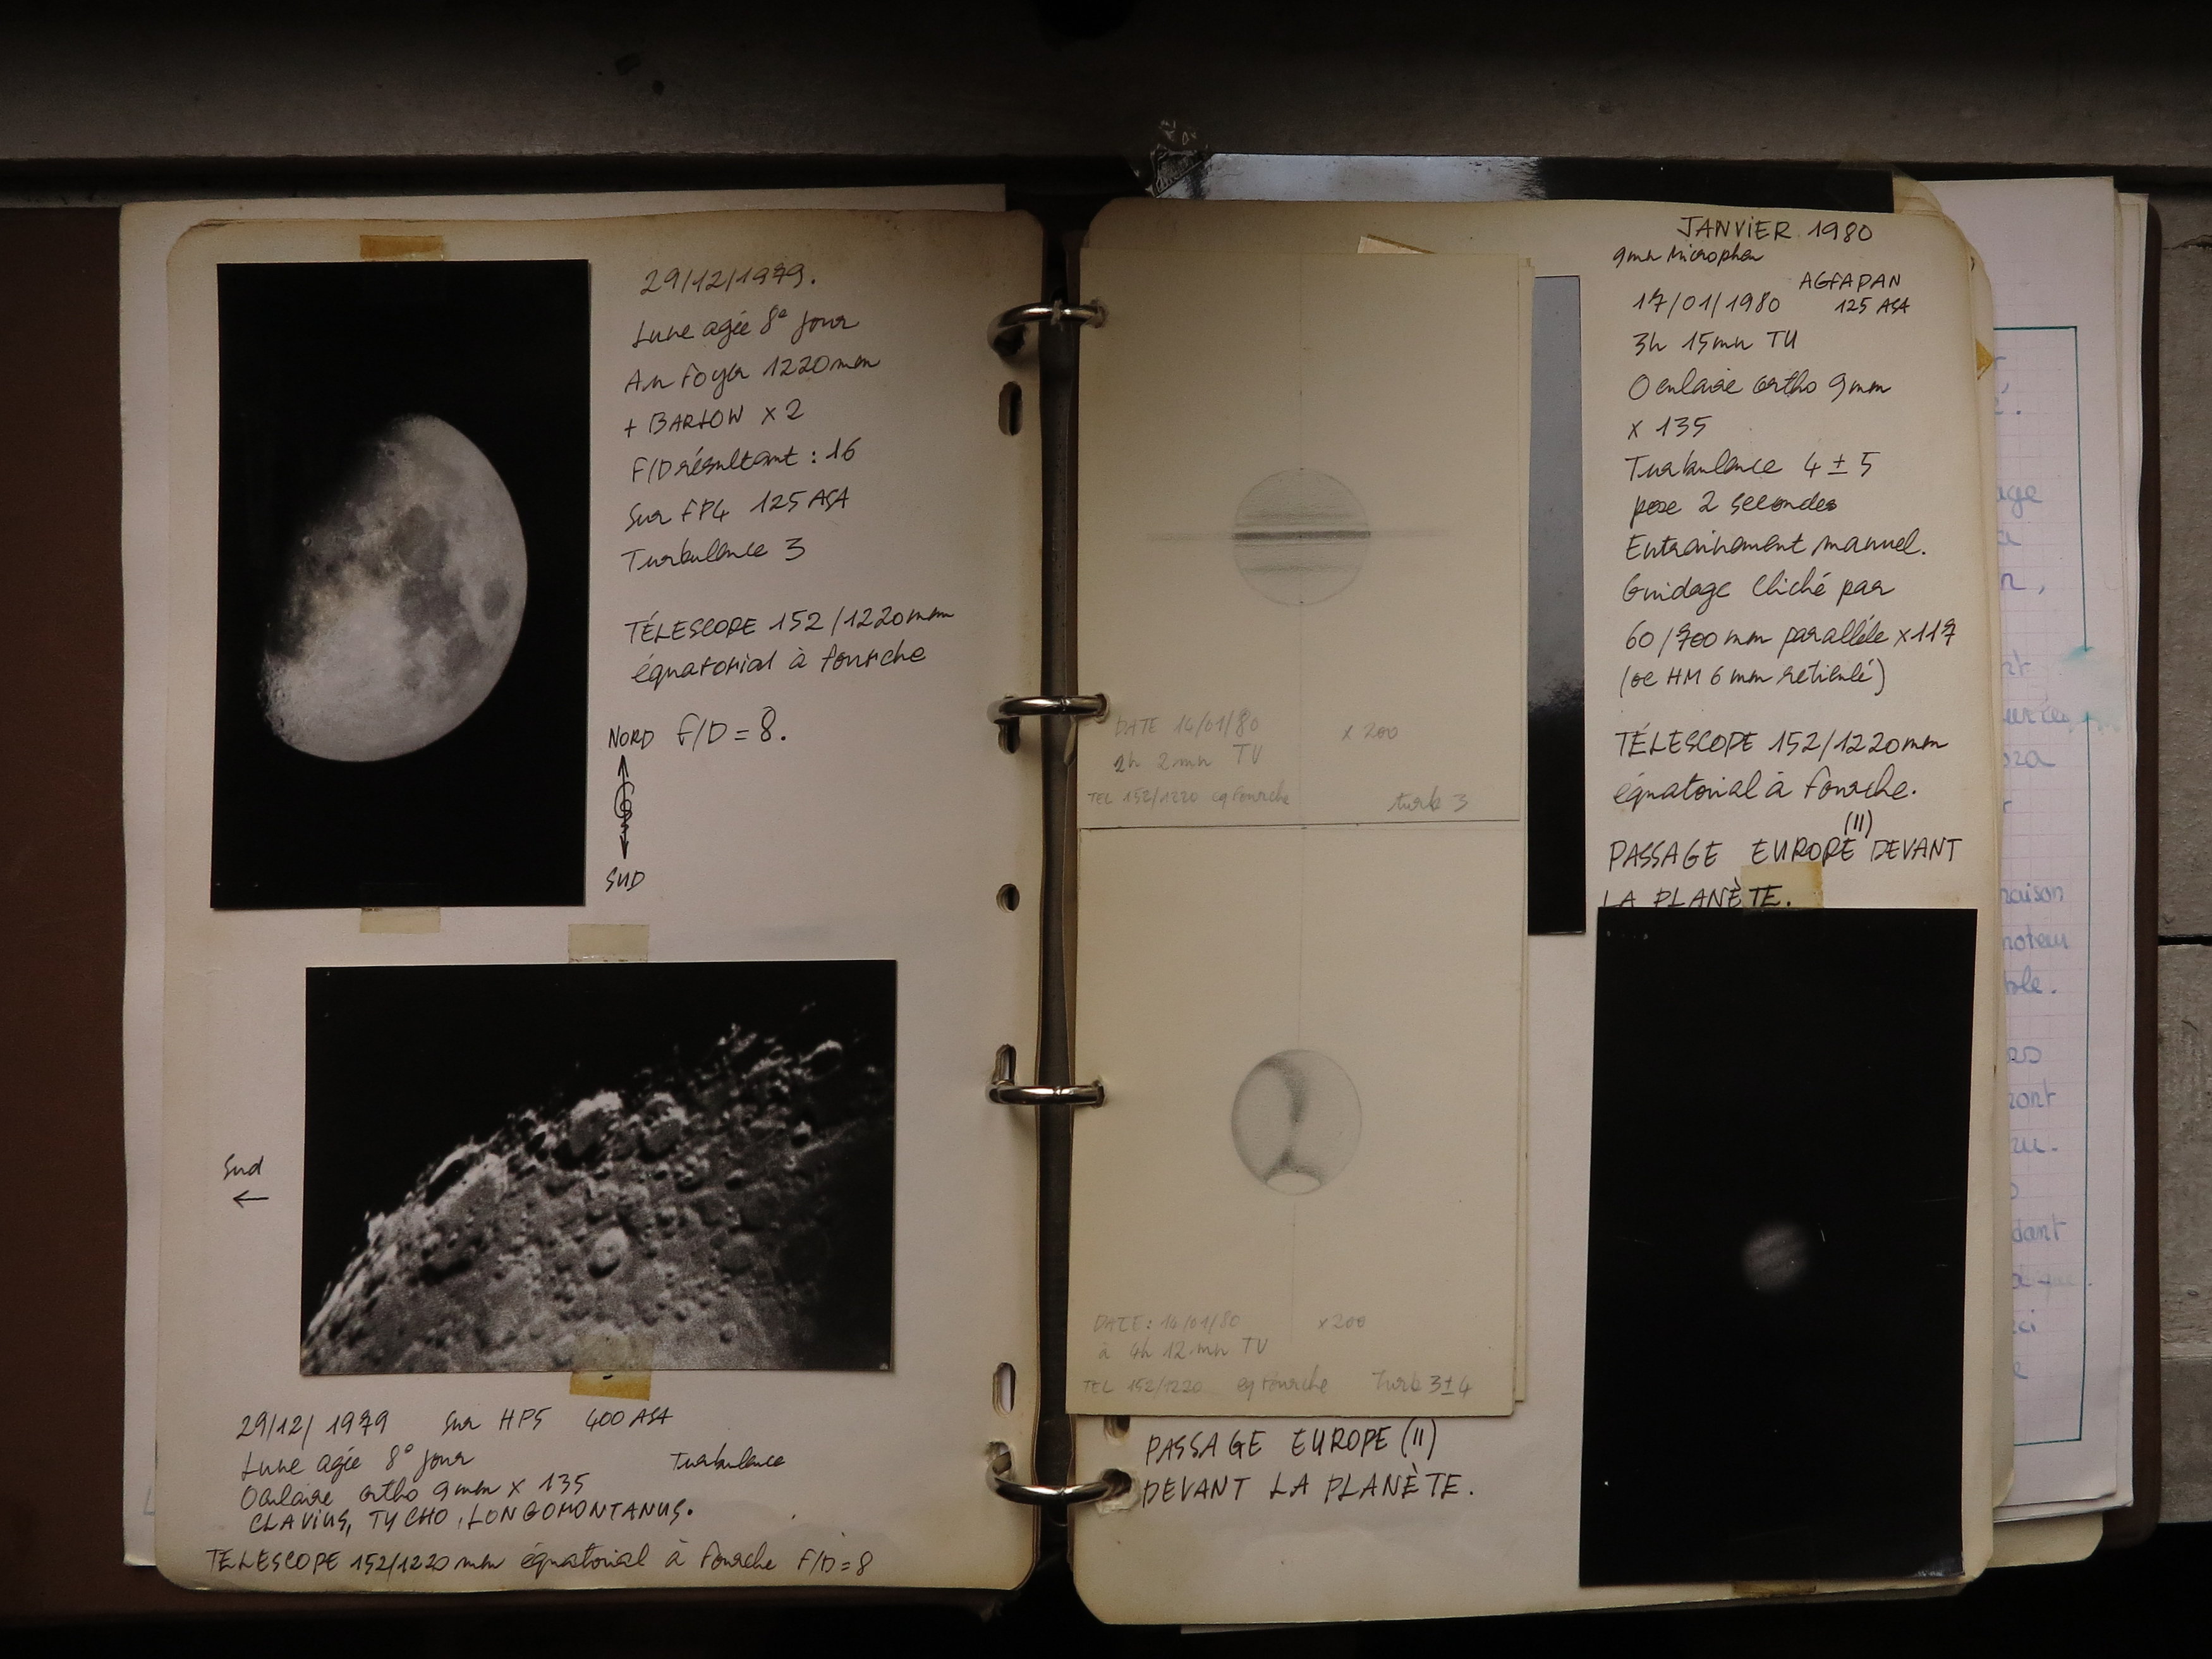 29/12/1979.
Lune agée 8e jour
Au Foyer 1220mm
+ BARLOW x 2
F/D résultant : 16
Sur FP4 125 ASA
Turbulence 3
TÉLESCOPE 152/1220mm
équatorial à fourche
NORD F/D = 8.
SUD
Sud
29/12/1979 Sur HP5 400 ASA
Lune agée 8° jour Turbulence
Oculaire ortho 9mm x 135
CLAVIUS, TYCHO, LONGOMONTANUS.
TELESCOPE 152/1220 mm équatorial à fourche F/D=8
DATE 14/01/80 x 200
2h 2mn TU
TEL 152/1220 eq fourche turb 3
DATE: 14/01/80 x200
à 4h 12mn TU
TEL 152/1220 eq fourche Turb 3±4
PASSAGE EUROPE (II)
DEVANT LA PLANÈTE.
JANVIER 1980
9mn Microphen
AGFAPAN
17/01/1980 125 ASA
3h 15mn TU
Oculaire ortho 9mm
x 135
Turbulence 4 ± 5
pose 2 secondes
Entrainement manuel.
Guidage Cliché par
60/700 mm parallèle x117
(oc HM 6 mm réticulé)
TÉLESCOPE 152/1220mm
équatorial à fourche.
(II)
PASSAGE EUROPE DEVANT
LA PLANÈTE.
raison
moteur
dant